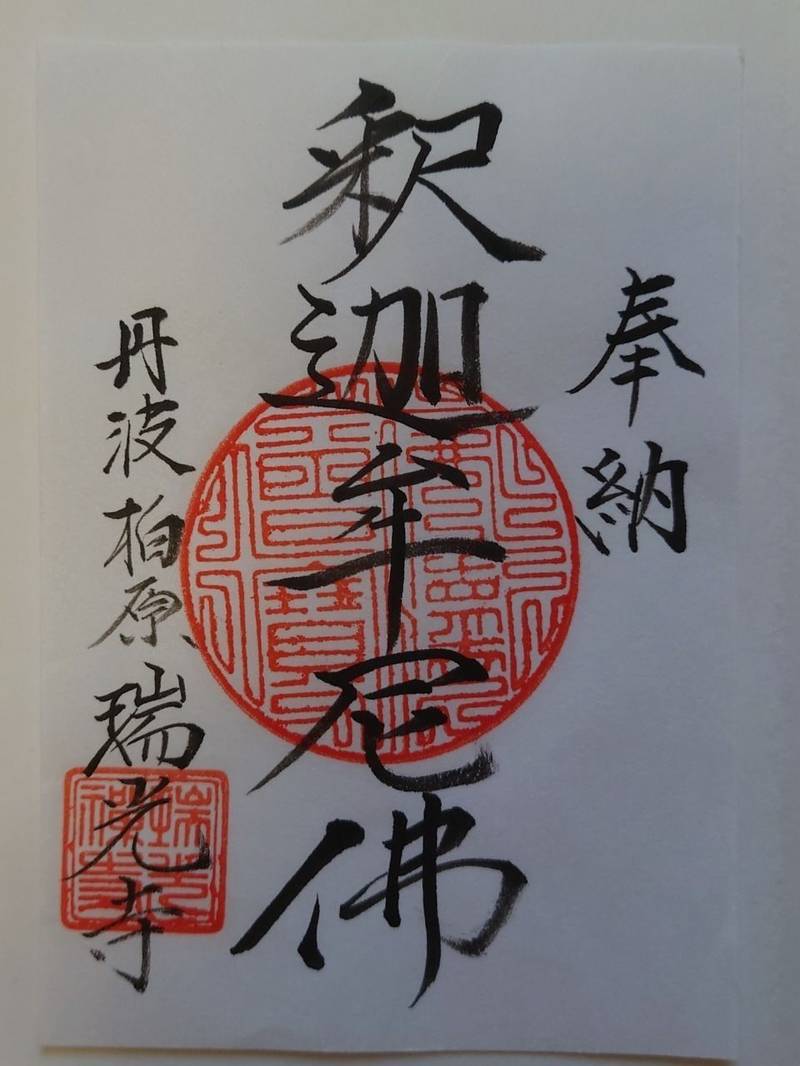 奉納
釈迦牟尼佛
丹波柏原瑞光寺